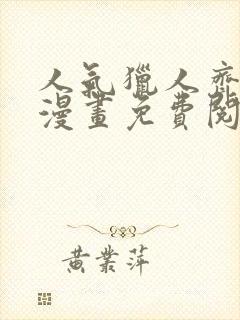 人氣獵人齊
漫畫免費閱
黃業萍